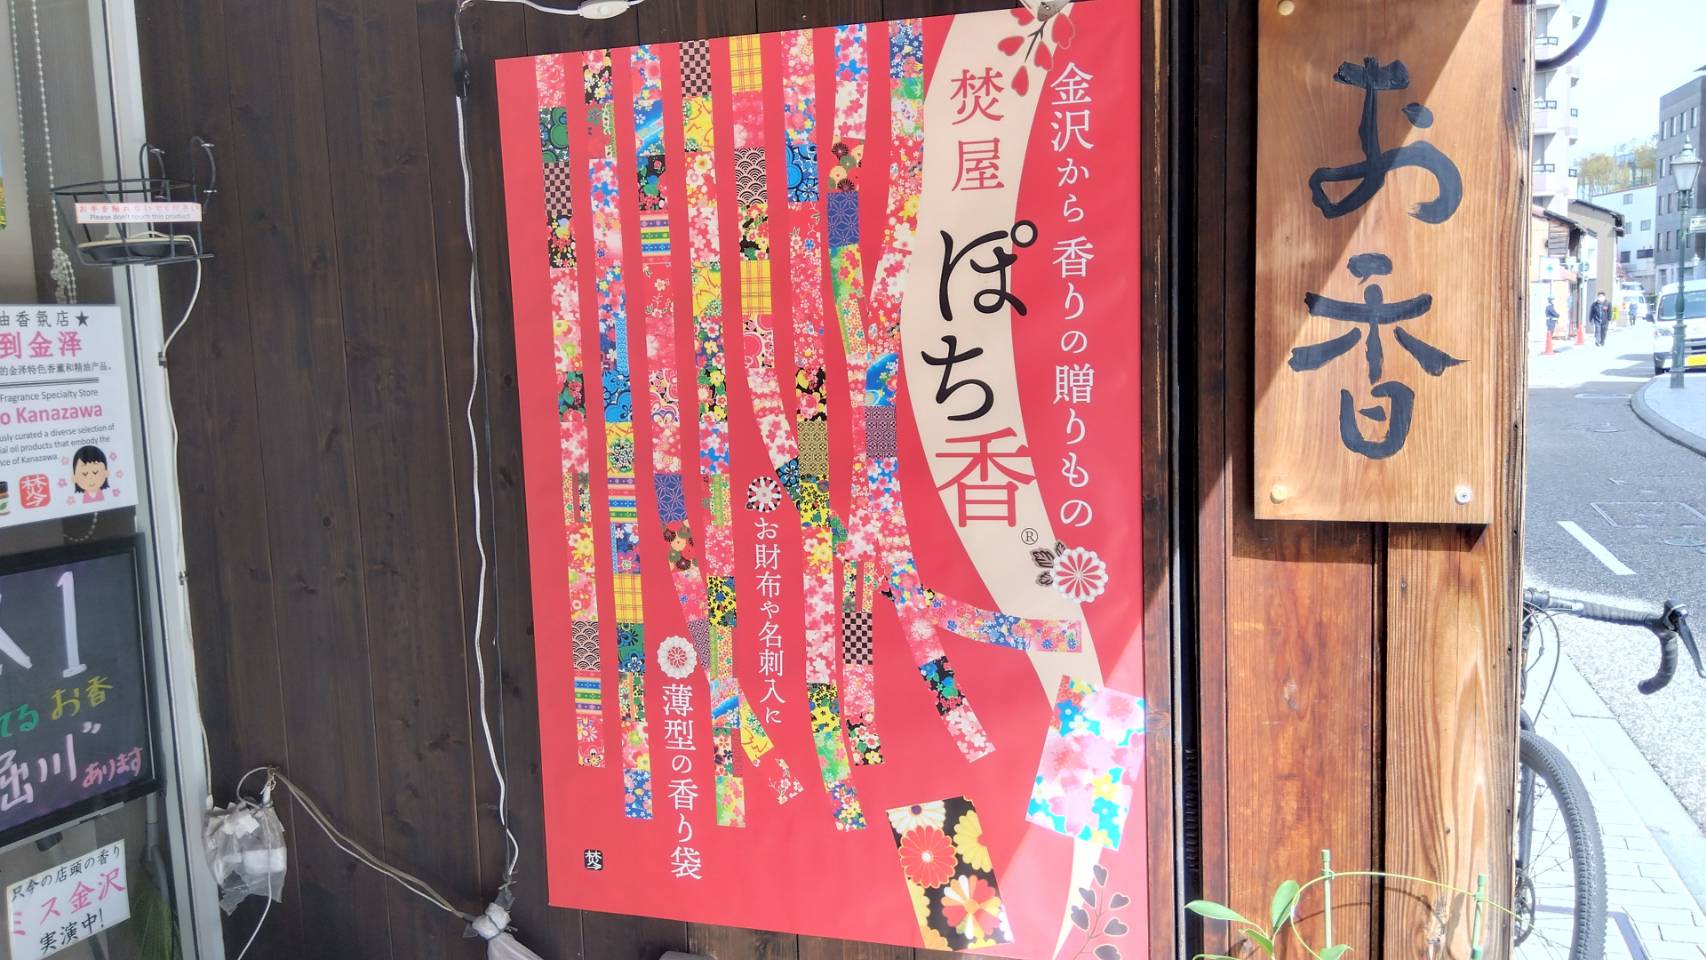 金沢から香りの贈りもの
焚屋
ぽち香®
お財布や名刺入に
薄型の香り袋
お香
お手を触れないでください
Please don't touch this product
油香氛店★
到金泽
的金泽特色香薰和精油产品。
Fragrance Specialty Store
o Kanazawa
usly curated a diverse selection of
ial oil products that embody the
nce of Kanazawa.
てるお香
堀川
あります
只今の店頭の香り
ミス金沢
実演中!